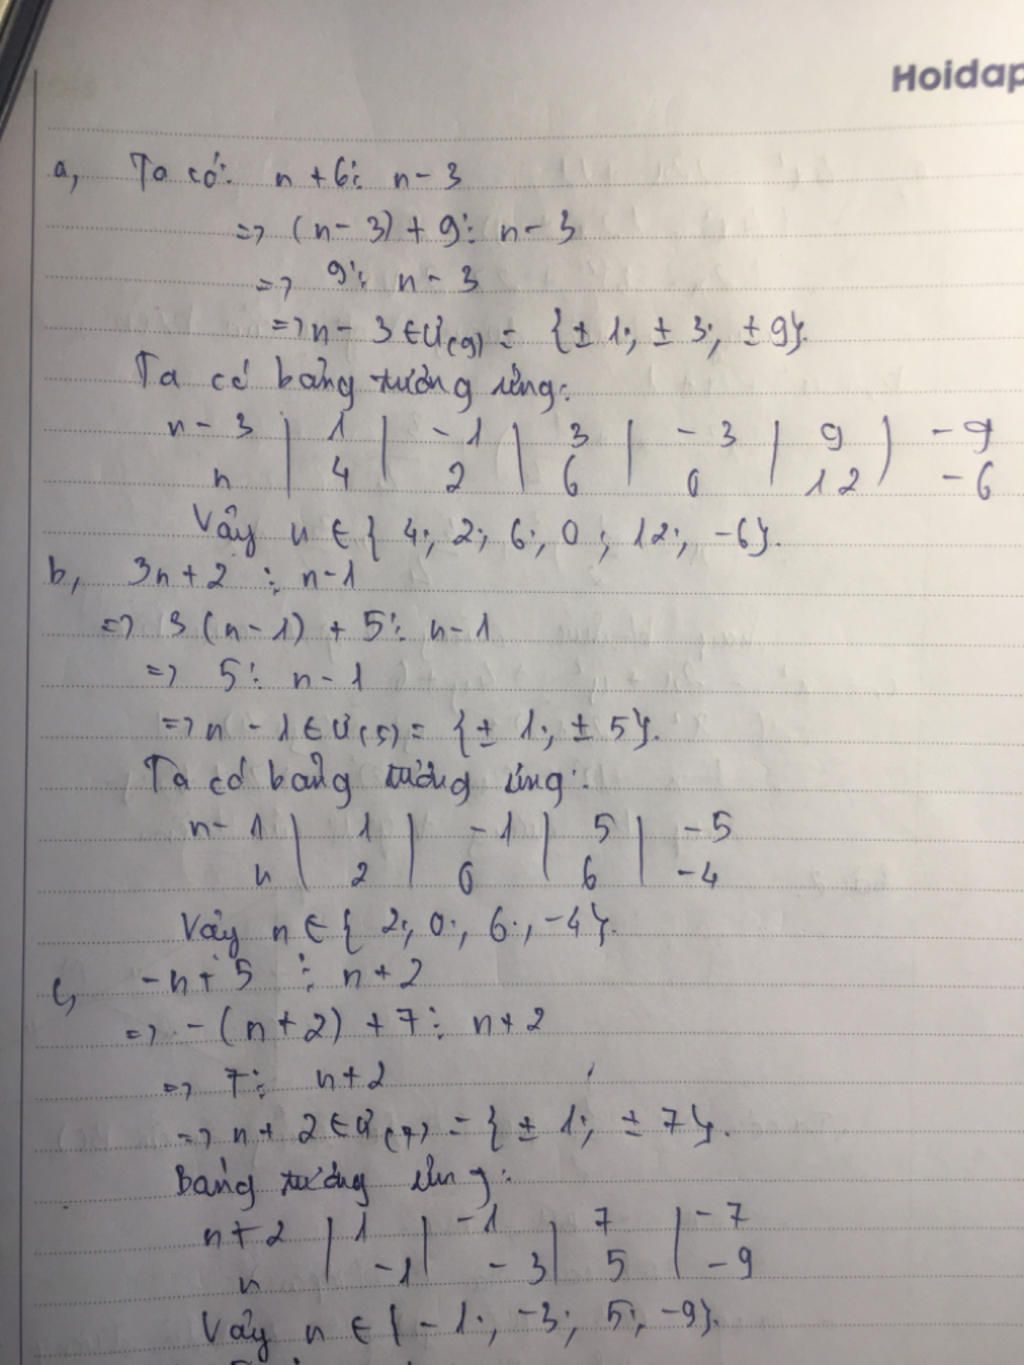 Hoidap
a, Ta có: n + 6 ⋮ n - 3
=> (n - 3) + 9 ⋮ n - 3
=> 9 ⋮ n - 3
=> n - 3 ∈ Ư(9) = {± 1; ± 3; ± 9}.
Ta có bảng tương ứng:
n - 3 | 1 | - 1 | 3 | - 3 | 9 | - 9
n | 4 | 2 | 6 | 0 | 12 | - 6
Vậy n ∈ { 4; 2; 6; 0; 12; -6}.
b, 3n + 2 ⋮ n - 1
=> 3 (n - 1) + 5 ⋮ n - 1
=> 5 ⋮ n - 1
=> n - 1 ∈ Ư(5) = {± 1; ± 5}.
Ta có bảng tương ứng:
n - 1 | 1 | - 1 | 5 | - 5
n | 2 | 0 | 6 | - 4
Vậy n ∈ { 2; 0; 6; -4}.
c, - n + 5 ⋮ n + 2
=> - (n + 2) + 7 ⋮ n + 2
=> 7 ⋮ n + 2
=> n + 2 ∈ Ư(7) = {± 1; ± 7}.
Bảng tương ứng:
n + 2 | 1 | - 1 | 7 | - 7
n | - 1 | - 3 | 5 | - 9
Vậy n ∈ { - 1; -3; 5; -9}.